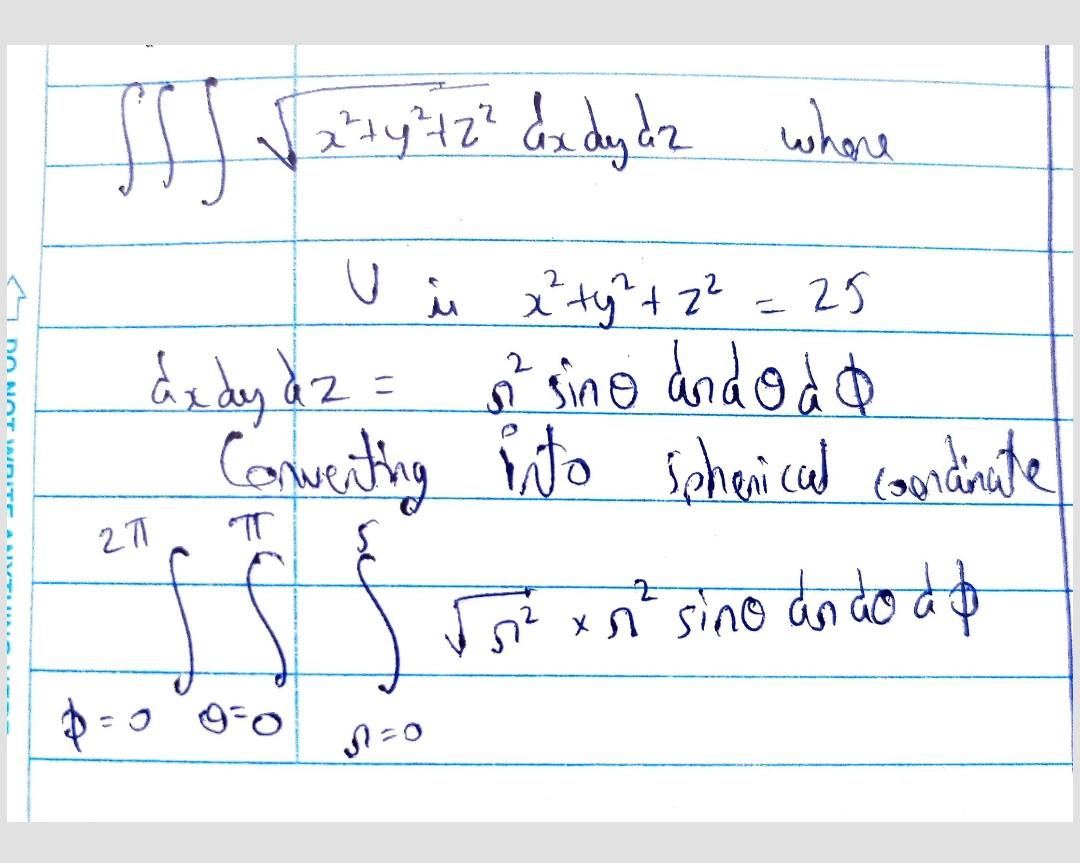 ∫∫∫ √x²+y²+z² dx dy dz where
U is x²+y²+z² = 25
dx dy dz = r² sinθ dr dθ dϕ
Converting into spherical coordinate
2π π 5
∫ ∫ ∫ √r² × r² sinθ dr dθ dϕ
ϕ=0 θ=0 r=0